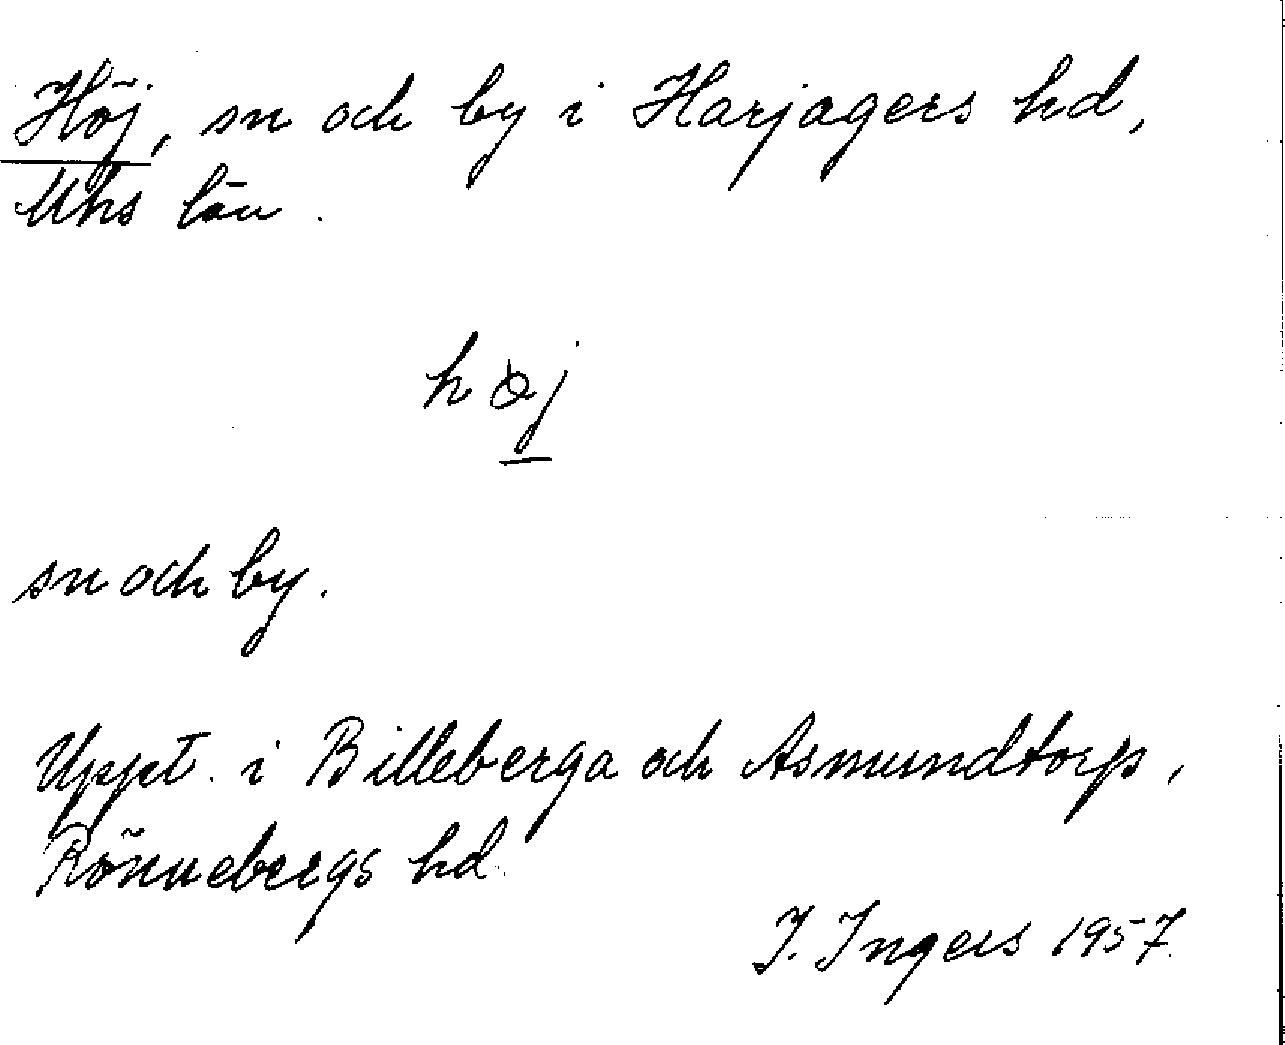 Höj, sn och by i Harjagers hd,
Mhs län.
høj
sn och by.
Uppt. i Billeberga och Asmundtorp,
Rönnebergs hd.
I. Ingers 1957.